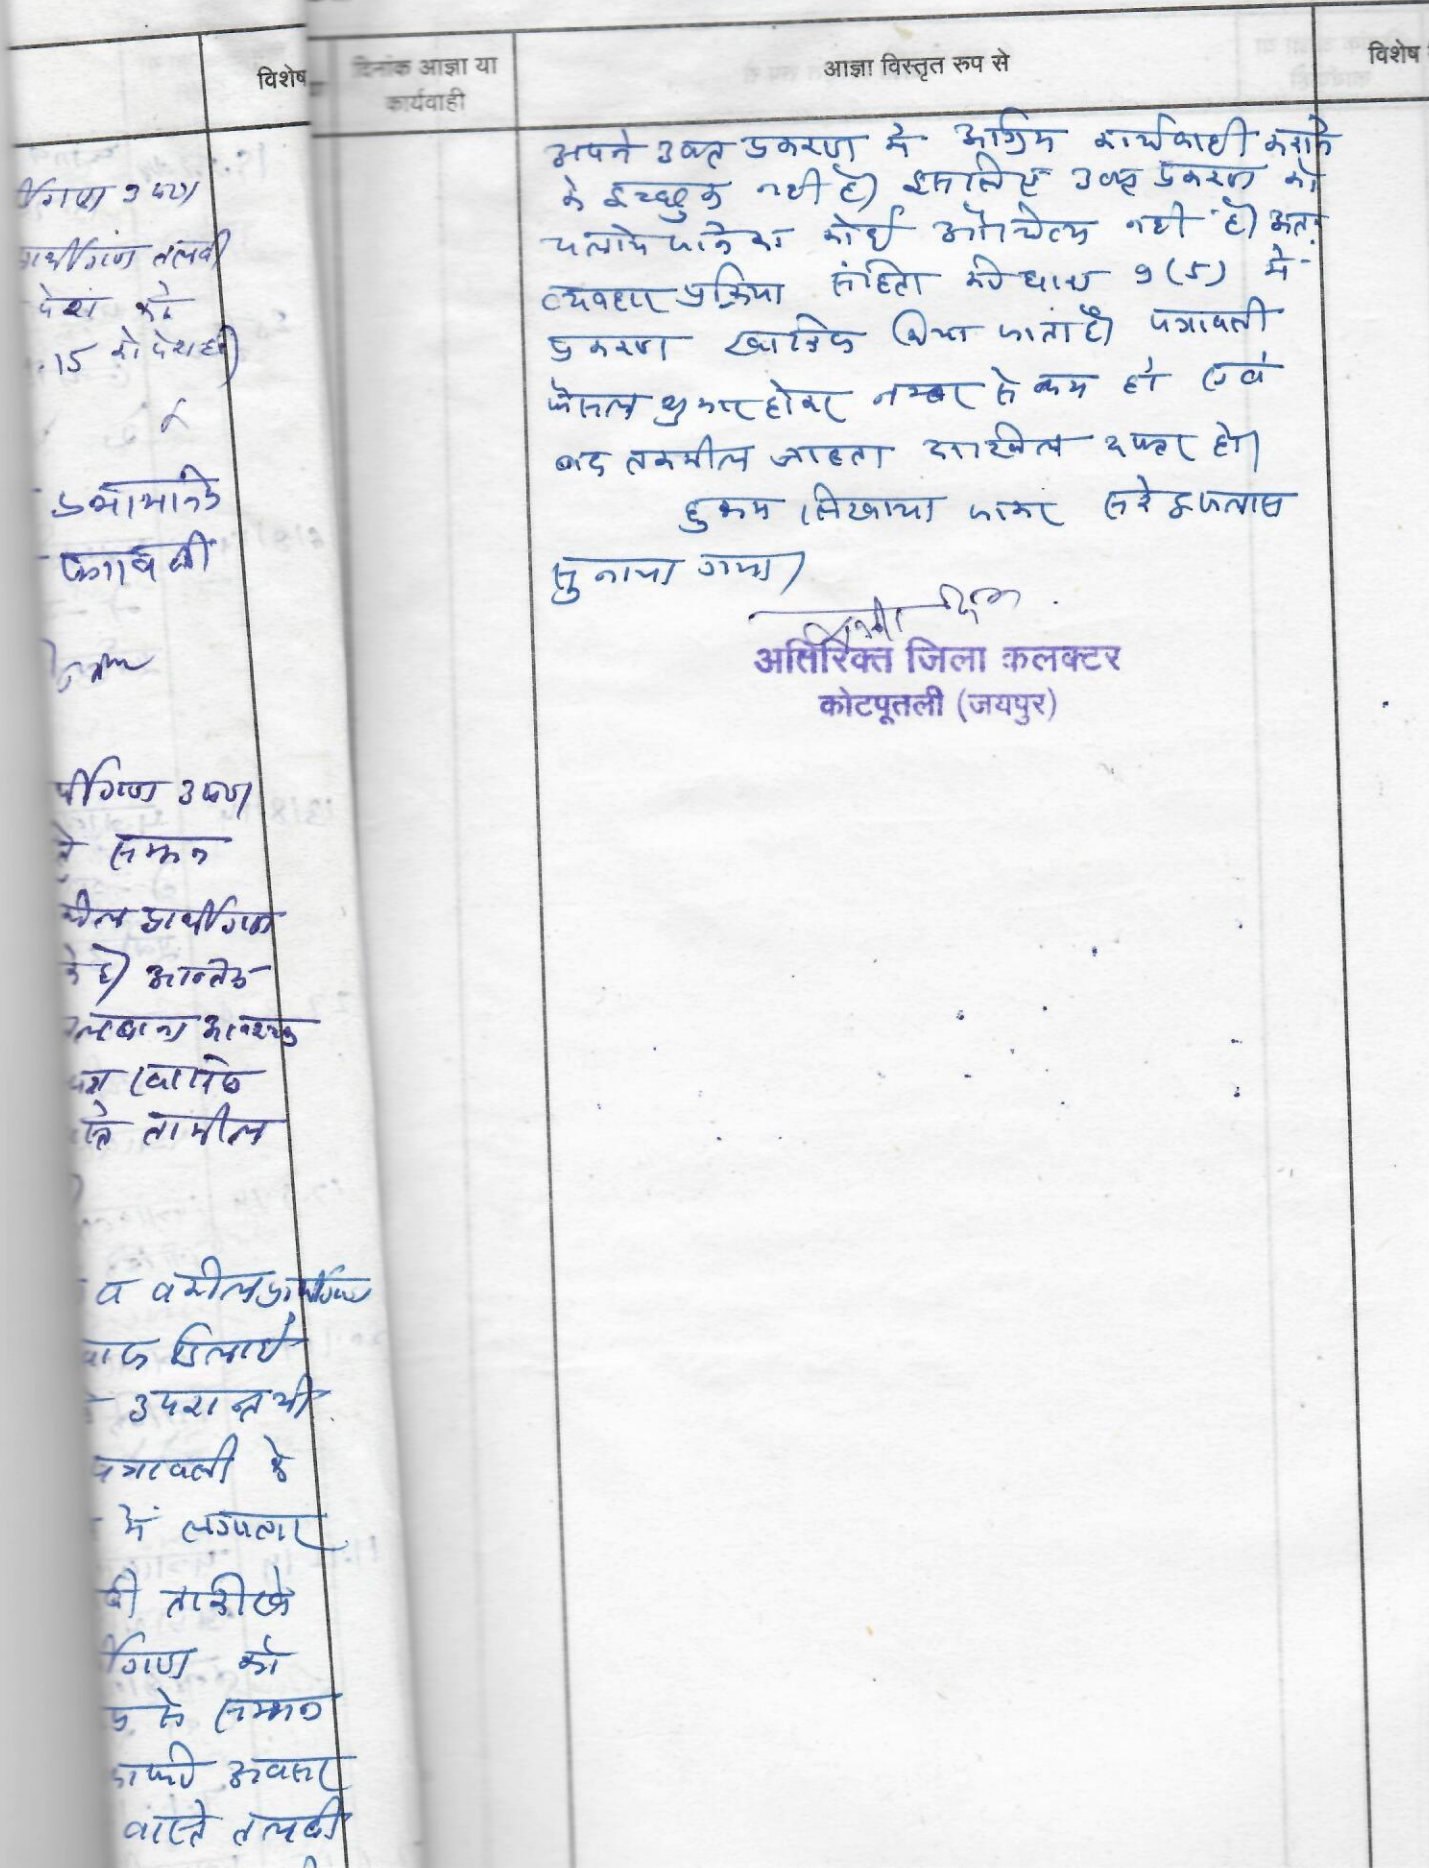 विशेष
र्थीगण उपा
प्रार्थीगण तलवी
पेश करे
.15 को पेश हो।
पत्रावली
र्थीगण उपा
से सम्मन
वकील प्रार्थीगण
के है। आन्तिम
तलबाना आवश्यक
तामील
व वकील प्रार्थीगण
उपरान्त भी
पत्रावली के
में लगातार
की तारीखे
र्थीगण को
से सम्मन
काफी अवसर
वास्ते तलबी
दिनांक आज्ञा या
कार्यवाही
आज्ञा विस्तृत रुप से
विशेष
अपने उक्त प्रकरण मे अग्रिम कार्यवाही कराने
के इच्छुक नही है। इसलिए उक्त प्रकरण को
चलाये जाने का कोई औचित्य नही है। अतः
व्यवहार प्रक्रिया संहिता की धारा 9(5) मे
प्रकरण खारिज किया जाता है। पत्रावली
फैसल शुमार होकर नम्बर से कम हो एवं
बाद तकमील जाब्ता दाखिल दफ्तर हो।
हुक्म लिखाया जाकर सरे इजलास
सुनाया गया।
अतिरिक्त जिला कलक्टर
कोटपूतली (जयपुर)